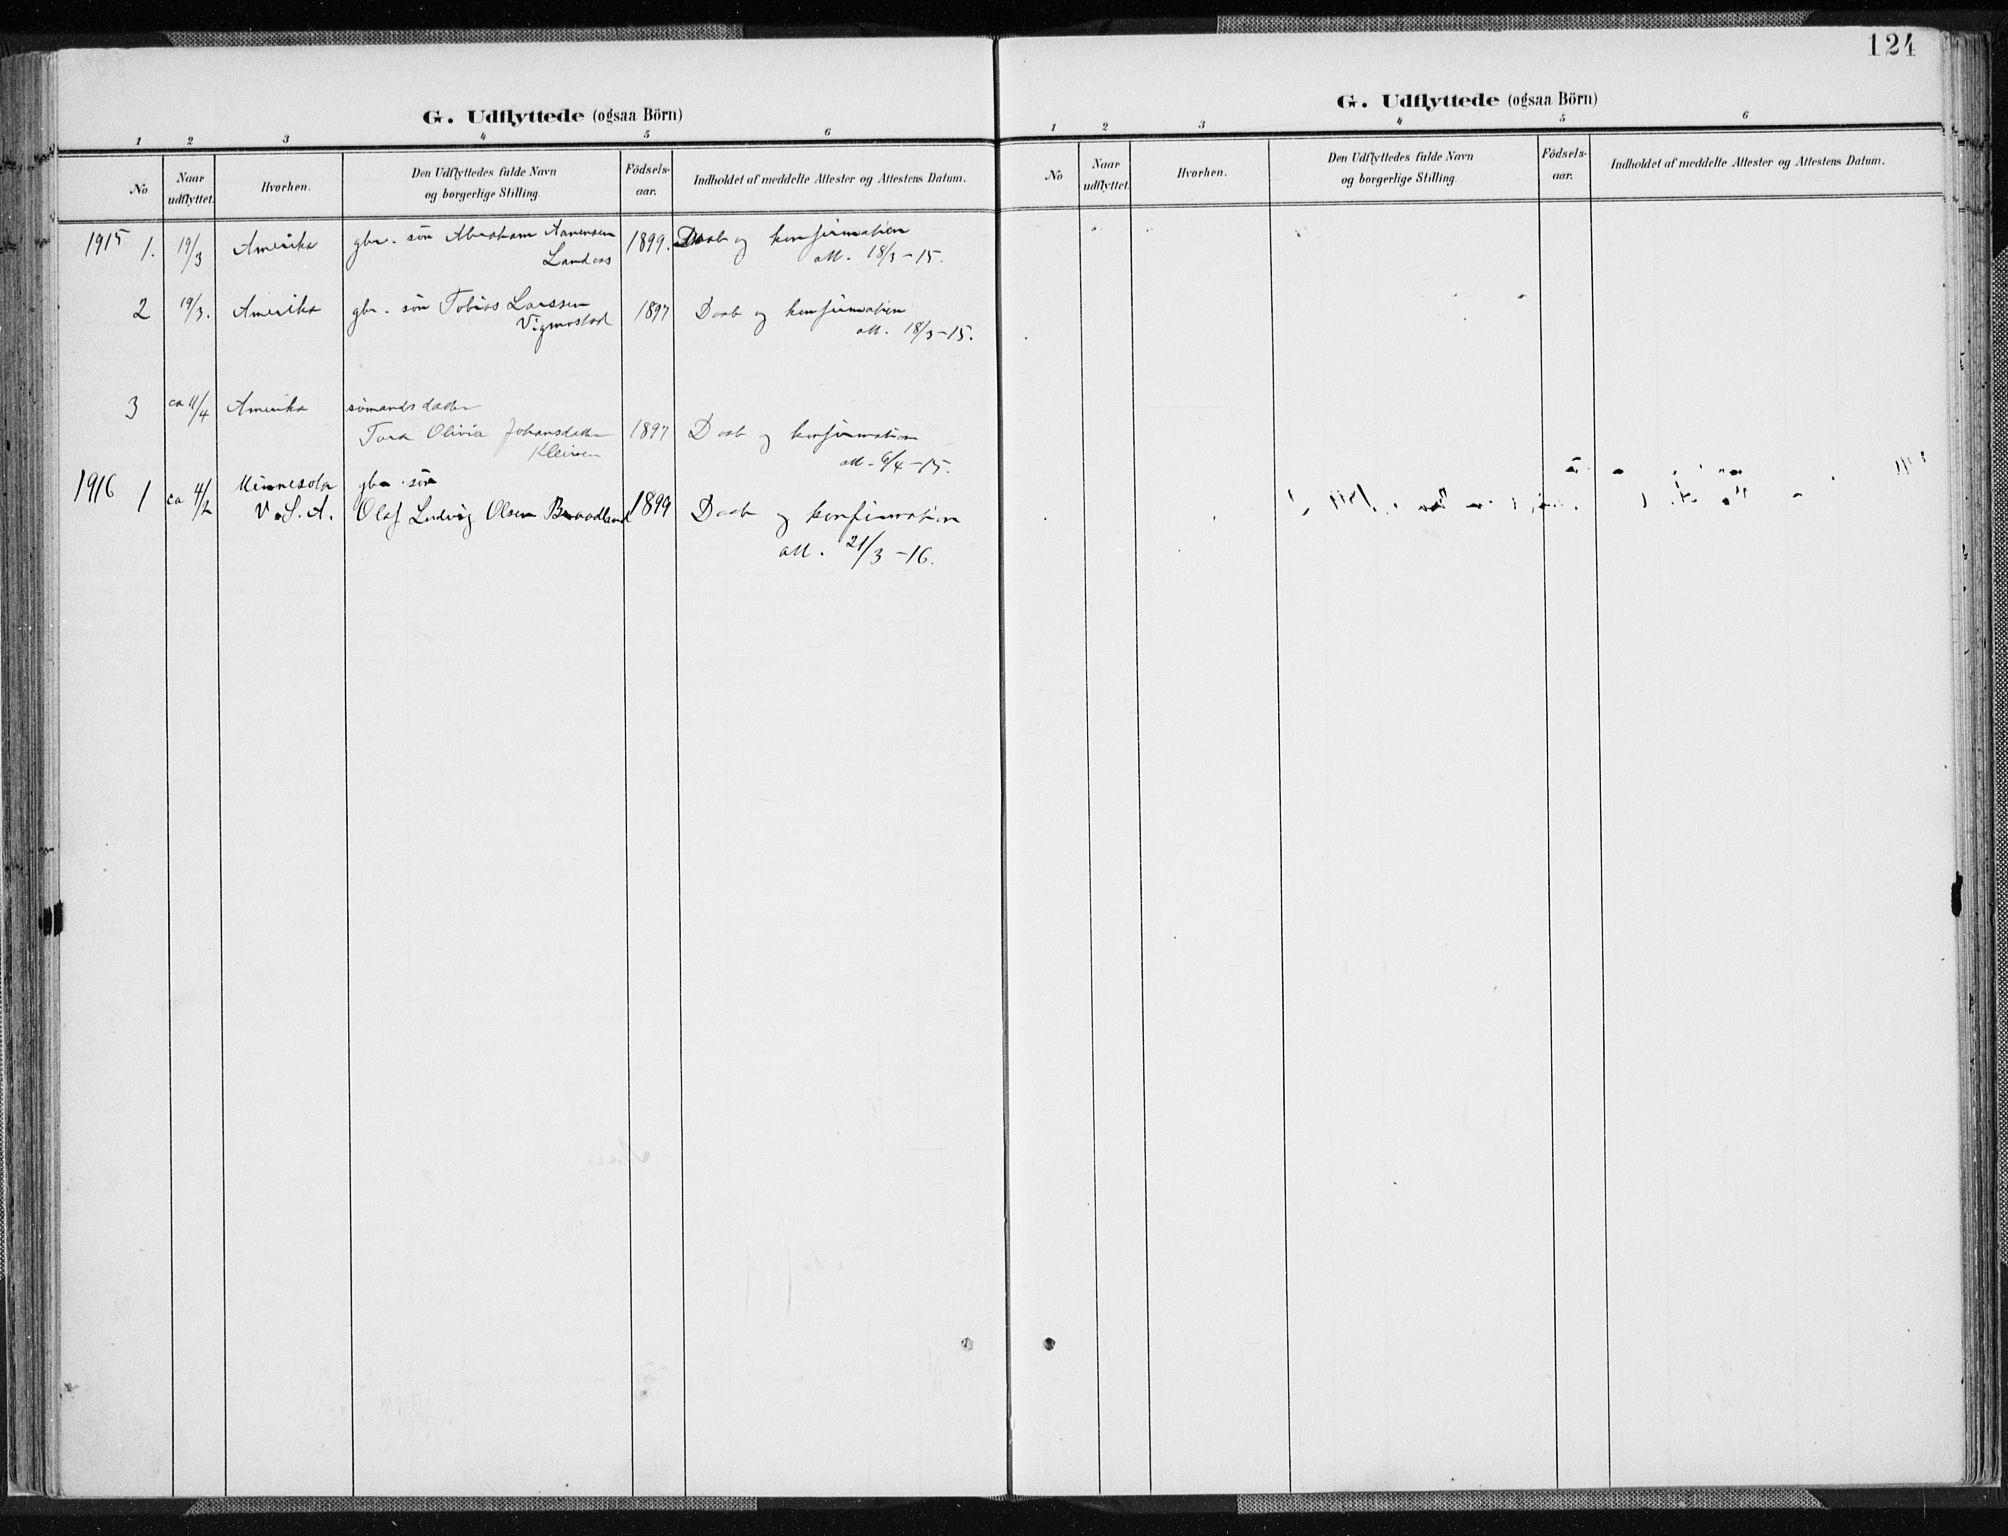 124
G. Udflyttede (ogsaa Börn)
1 2 3 4 5 6
No Naar udflyttet. Hvorhen. Den Udflyttedes fulde Navn og borgerlige Stilling. Födsels-aar. Indholdet af meddelte Attester og Attestens Datum.
1915 1. 19/3 Amerika gbr. søn Abraham Aanensen 1899. Daab og konfirmation
att. 18/3-15.
2 19/3. Amerika gbr. søn Tobias Larssen 1897 Daab og konfirmation
Vigmostad att. 18/3-15.
3 ca 11/4 Amerika sømandsdatter
Tora Olivia Johansdatter 1897 Daab og konfirmation
att. 6/4-15.
1916 Minnesota gbr. søn
1 ca 4/2 U.S.A. Olaf Ludvig Olsen Braadland 1899 Daab og konfirmation
att. 21/3-16.
G. Udflyttede (ogsaa Börn)
1 2 3 4 5 6
No Naar udflyttet. Hvorhen. Den Udflyttedes fulde Navn og borgerlige Stilling. Födsels-aar. Indholdet af meddelte Attester og Attestens Datum.